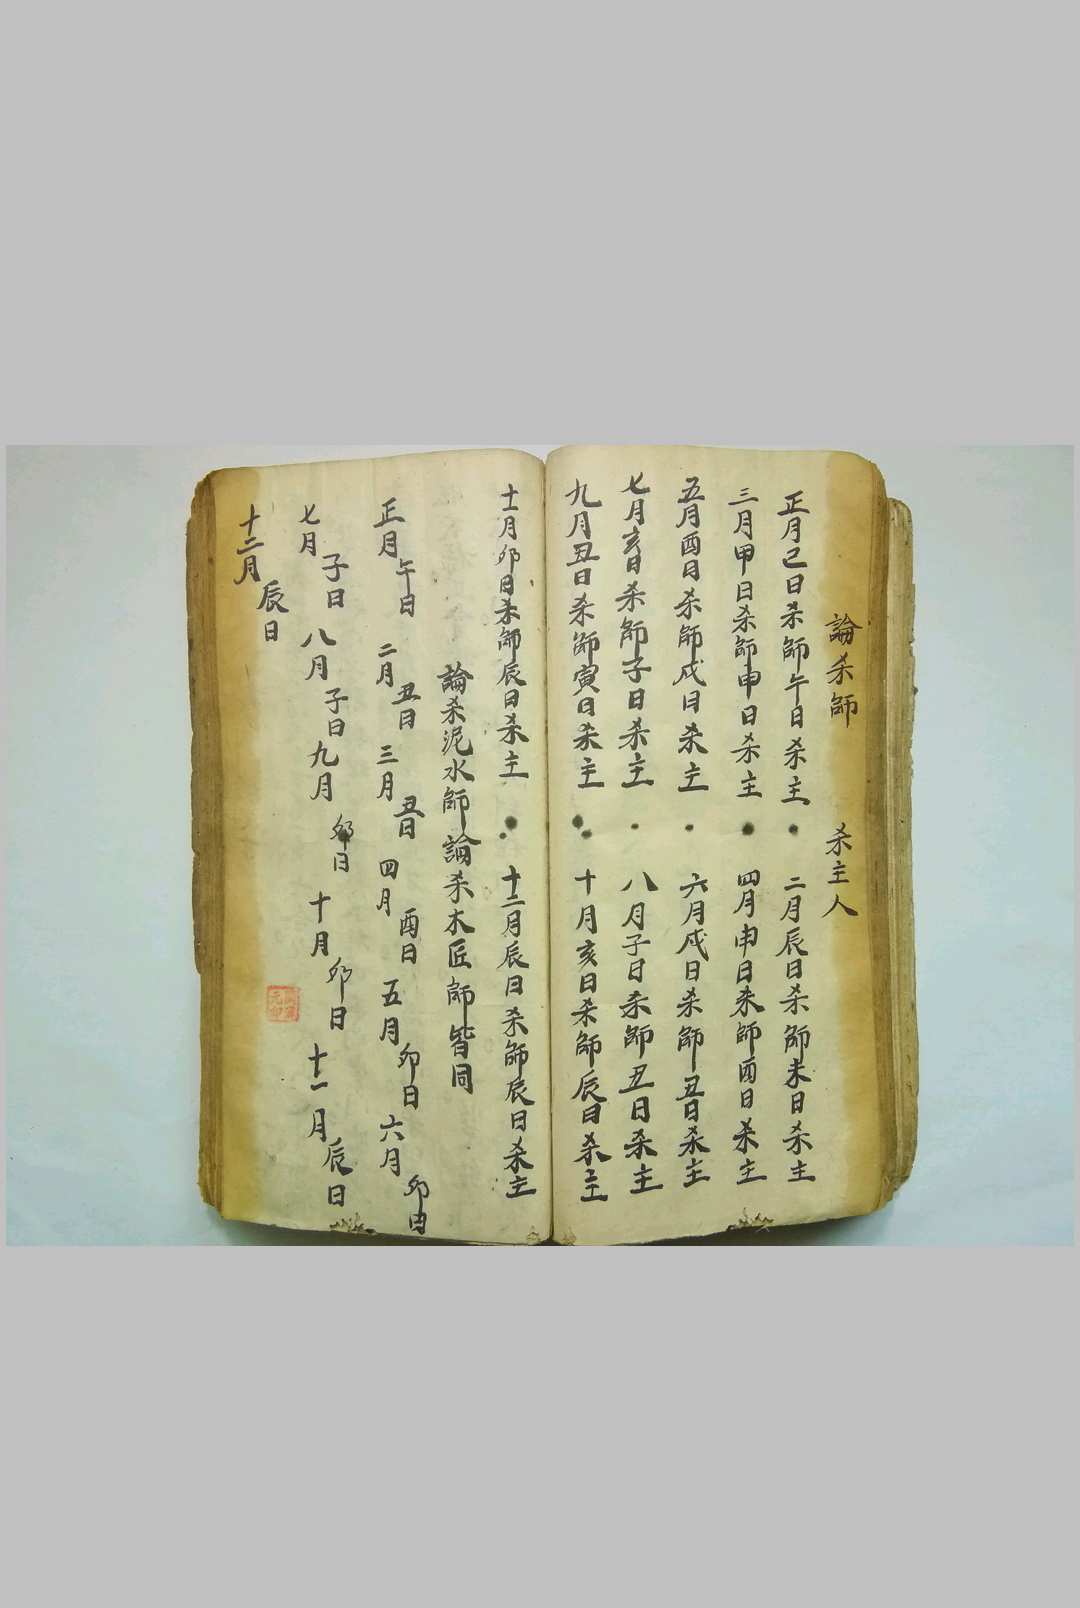 論杀師 杀主人
正月己日杀師午日杀主 二月辰日杀師未日杀主
三月甲日杀師申日杀主 四月申日杀師酉日杀主
五月酉日杀師戌日杀主 六月戌日杀師丑日杀主
七月亥日杀師子日杀主 八月子日杀師丑日杀主
九月丑日杀師寅日杀主 十月亥日杀師辰日杀主
十一月卯日杀師辰日杀主 十二月辰日杀師辰日杀主
論杀泥水師論杀木匠師皆同
正月午日 二月丑日 三月丑日 四月酉日 五月卯日 六月卯日
七月子日 八月子日 九月卯日 十月卯日 十一月辰日
十二月辰日